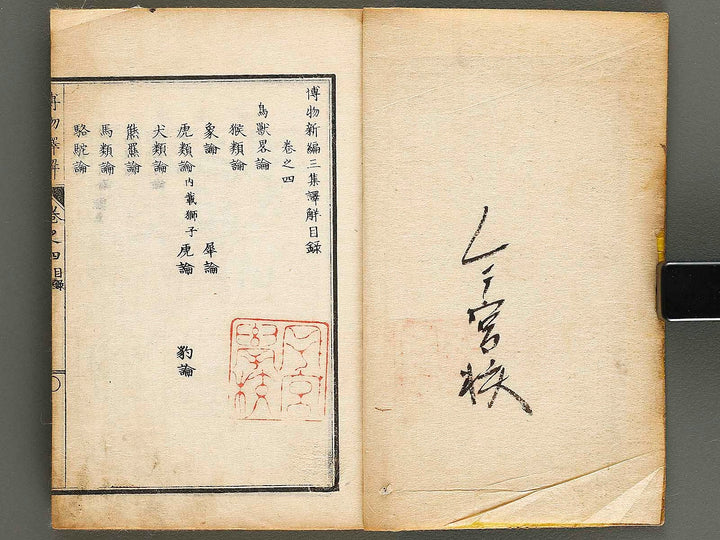 宮校
博物新編三集譯觧目錄
卷之四
鳥獸畧論
猴類論
象論 犀論
虎類論 内載獅子 虎論 豹論
犬類論
熊羆論
馬類論
駱駝論
博物譯解 卷之四 目錄